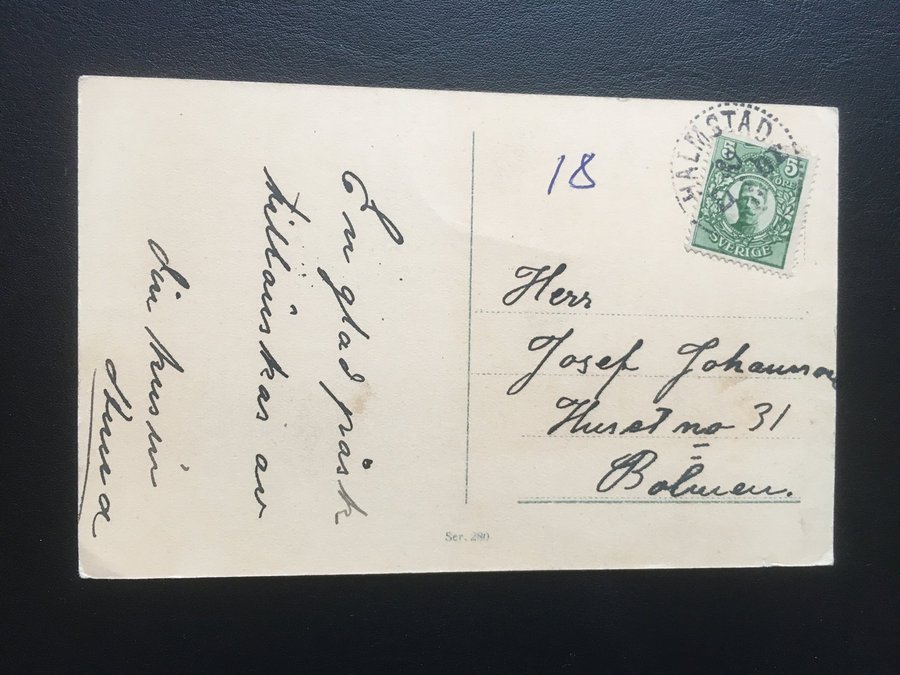 En glad påsk
tillönskas av
din kusin
18
HALMSTAD
5 5
ÖRE
SVERIGE
Herr
Josef Johansson
Huset no 31
Bolmen.
Ser. 280